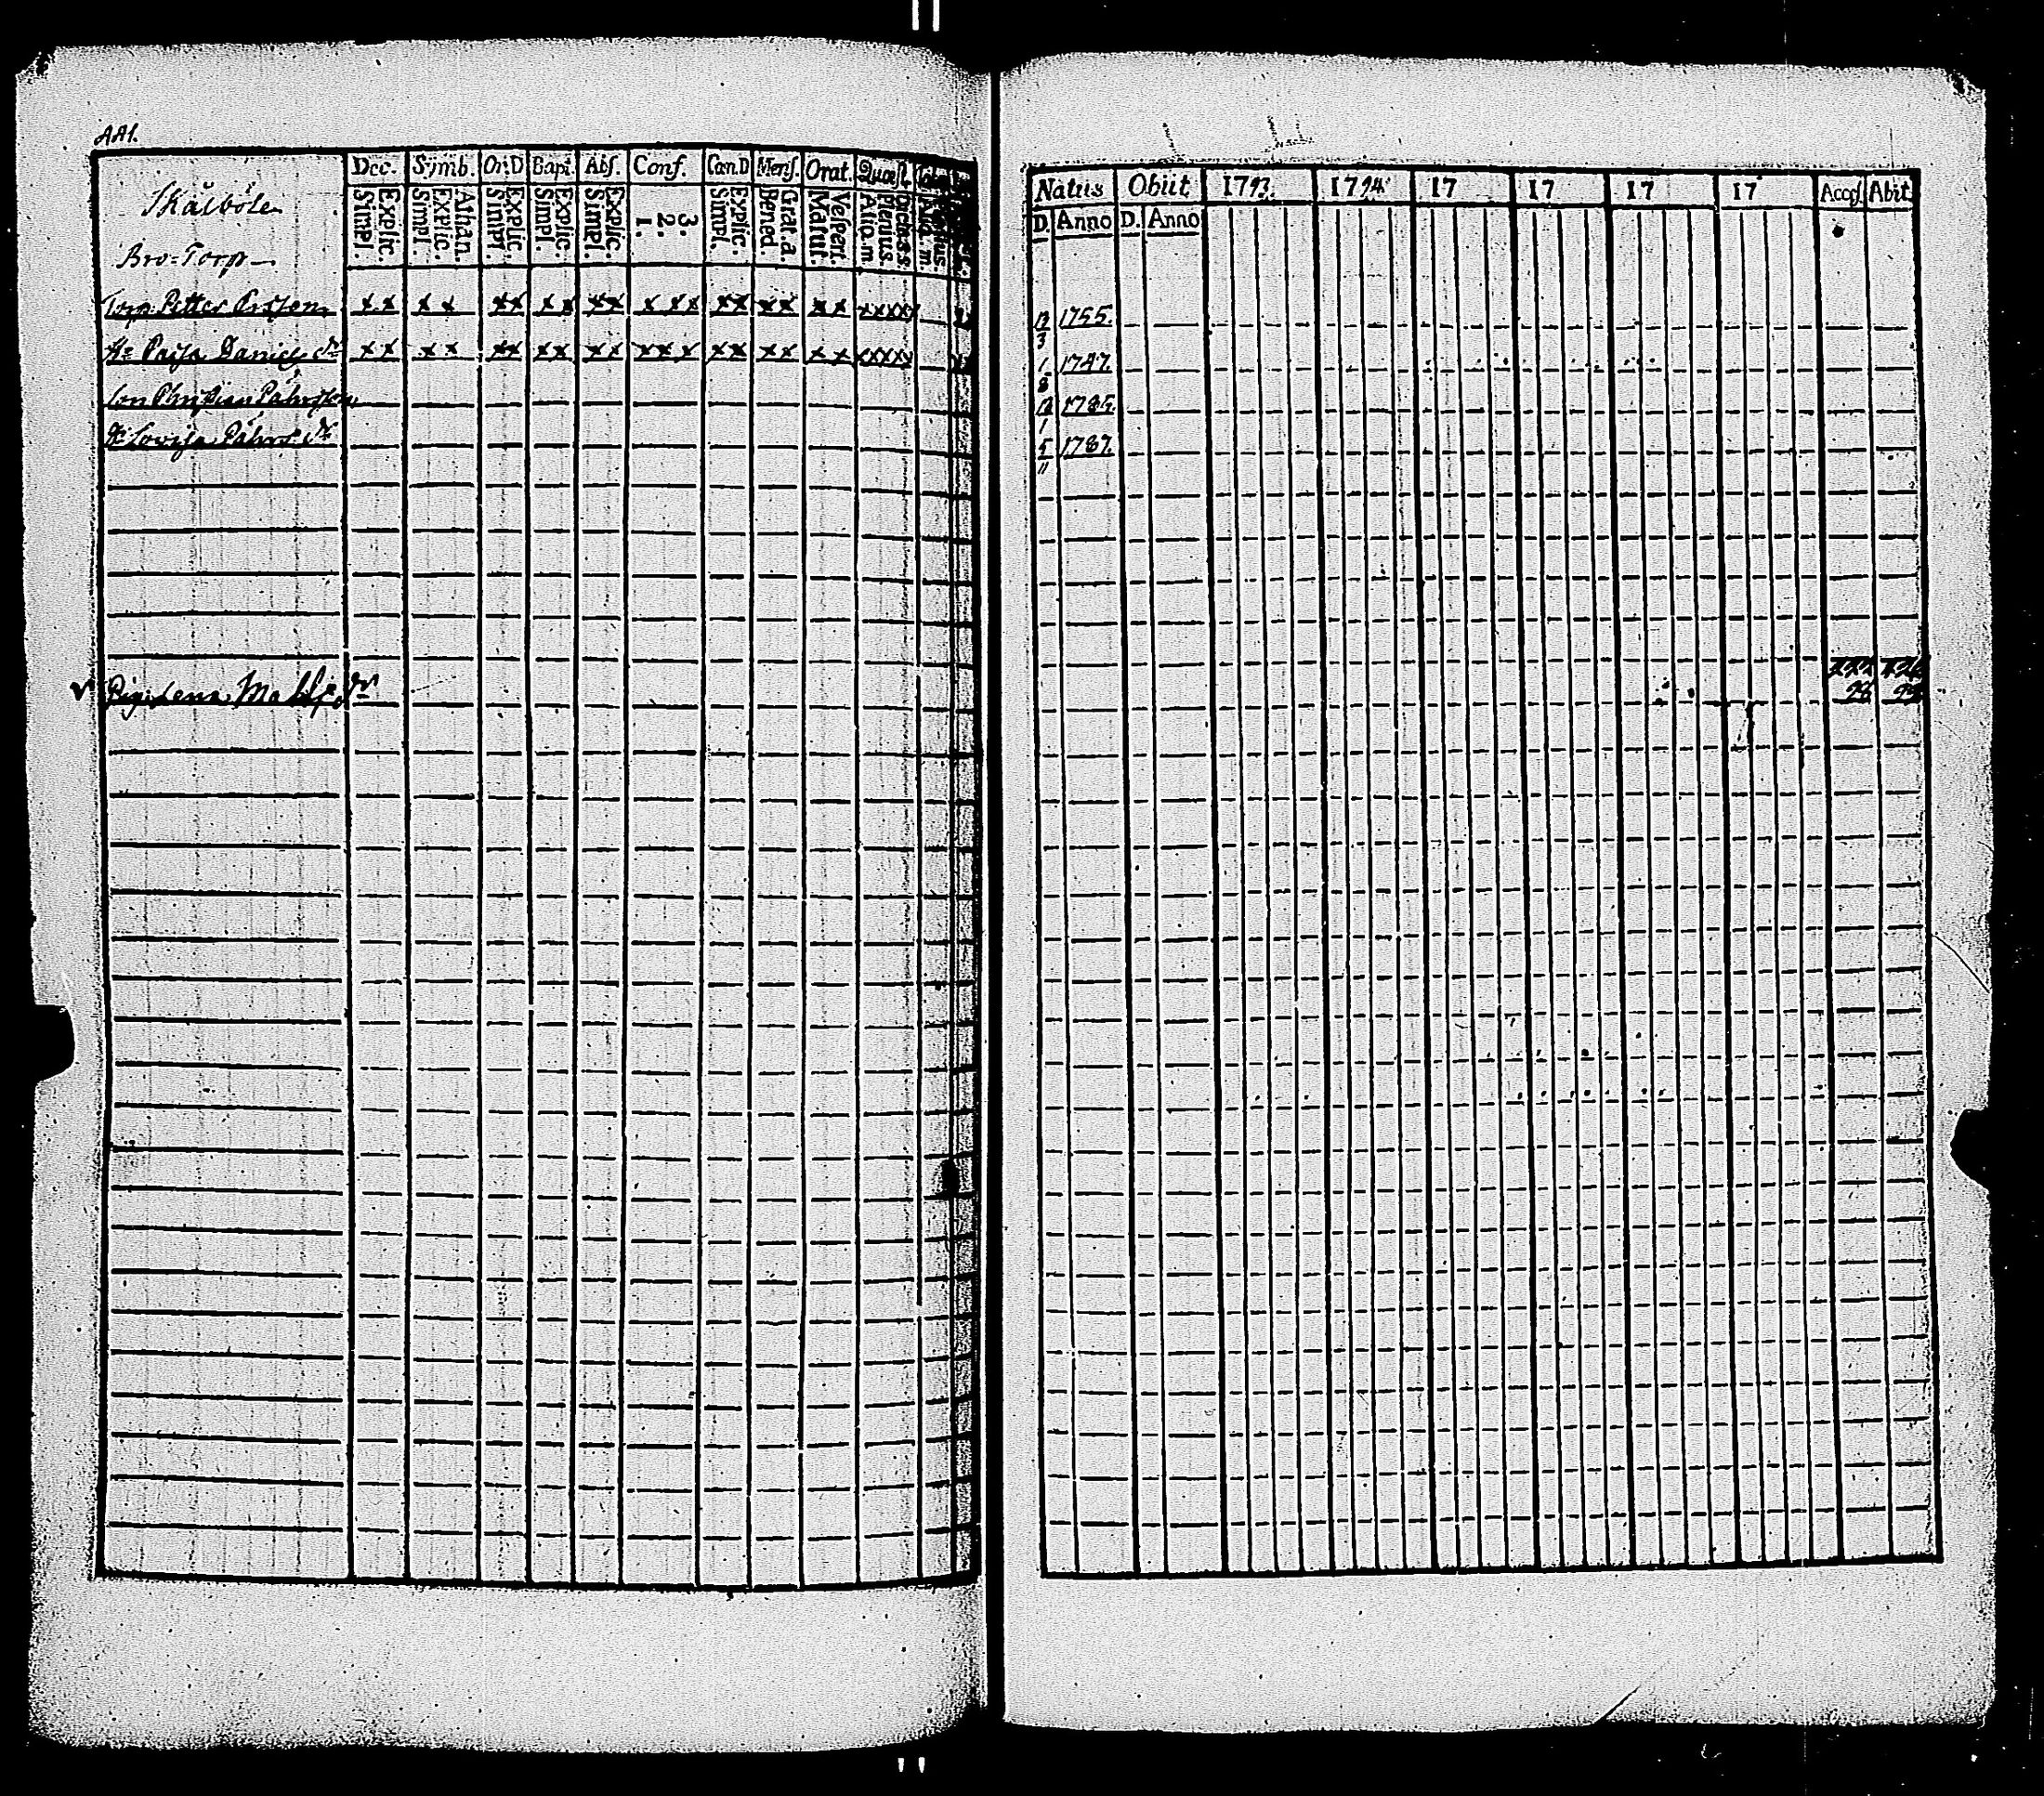 441.
Skålböle
Bro-Torp
Dec. Symb. Or.D Bapt. Abs. Conf. Cœn.D Mens. Orat. Quæst.
Explic. Simpl. Athan. Explic. Simpl. Explic. Simpl. Explic. Simpl. Explic. Simpl. 3. 2. 1. Explic. Simpl. Grat. a. Bened. Vesper. Matut. Dictis s. Plenius. Aliq. m
Torp. Petter x x x x x x x x x x x x x x x x x x x x x x x
H: Caisa Daniels dr x x x x x x x x x x x x x x x x x x x x x x x
Son Christian
Dr Lovisa dr
v Pig. Lena Matts dr
Natus Obiit 1793. 1794. 17 17 17 17 Access. Abit
D. Anno D. Anno
12/3 1755.
1/8 1747.
12/1 1785.
5/11 1787.